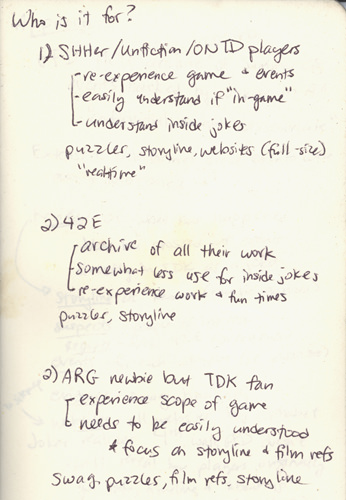 Who is it for?
1) SHHer/Unfiction/ONTD players
- re-experience game + events
- easily understand if "in-game"
- understand inside jokes
puzzles, storyline, websites (full-size)
"realtime"
2) 42E
- archive of all their work
- somewhat less use for inside jokes
- re-experience work + fun times
puzzles, storyline
3) ARG newbie but TDK fan
- experience scope of game
- needs to be easily understood
* focus on storyline + film refs
swag, puzzles, film refs, storyline